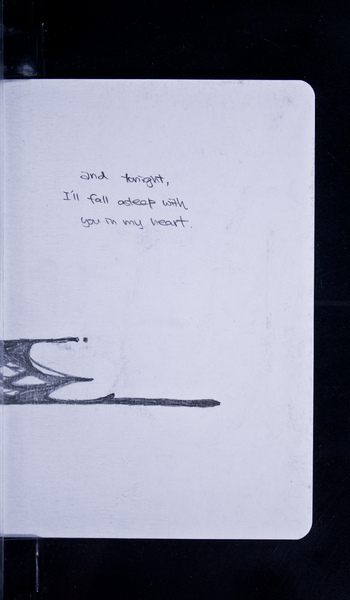 and tonight,
I'll fall asleep with
you in my heart.